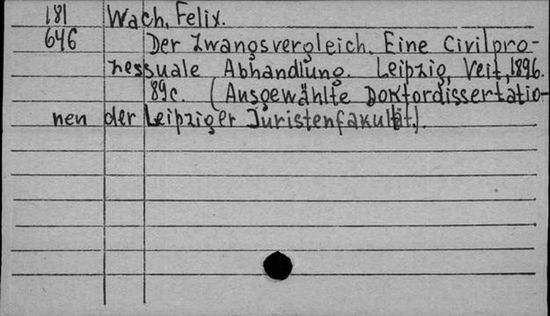 181 Wach, Felix.
646 Der Zwangsvergleich. Eine Civilpro-
zessuale Abhandlung. Leipzig, Veit, 1896.
89c. (Ausgewählte Doktordissertatio-
nen der Leipziger Juristenfakultät.)